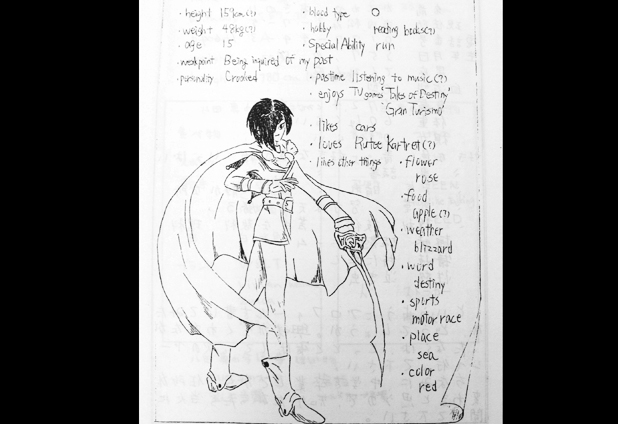 ・height 159cm(?)
・weight 48kg(?)
・age 15
・weakpoint Being inquired of my past
・personality Crooked
・blood type O
・hobby reading books(?)
・Special Ability run
・pastime listening to music(?)
・enjoys TV games 'Tales of Destiny'
'Gran Turismo'
・likes cars
・loves Rutee Kartret(?)
・likes other things
・flower
rose
・food
apple(?)
・weather
blizzard
・word
destiny
・sports
motor race
・place
sea
・color
red